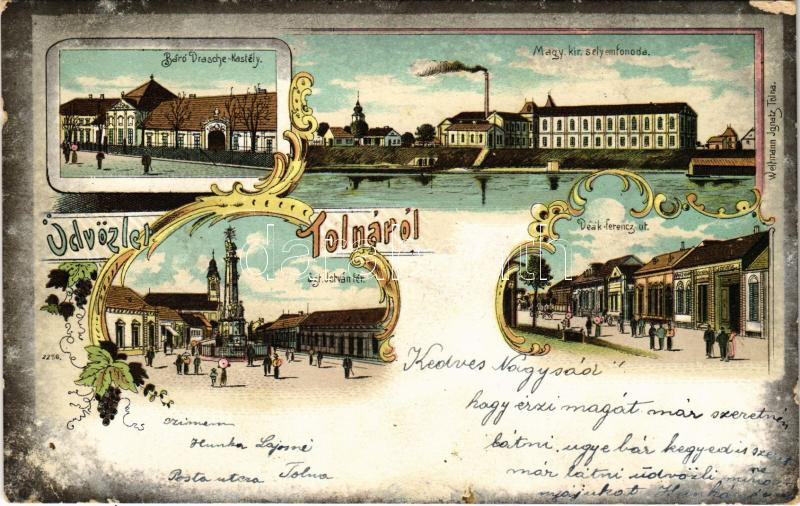 Báró Drasche-Kastély.
Magy. kir. selyemfonoda.
Weltmann Ignatz, Tolna.
Üdvözlet
Tolnáról
Deák-Ferencz út.
Szt. István tér.
2256.
Kedves Nagysád
hogy érzi magát már szeretném
látni, ugye bár kegyed is
már látni üdvözli
Hunka
czimem
Hunka Lajosné
Posta utcza Tolna